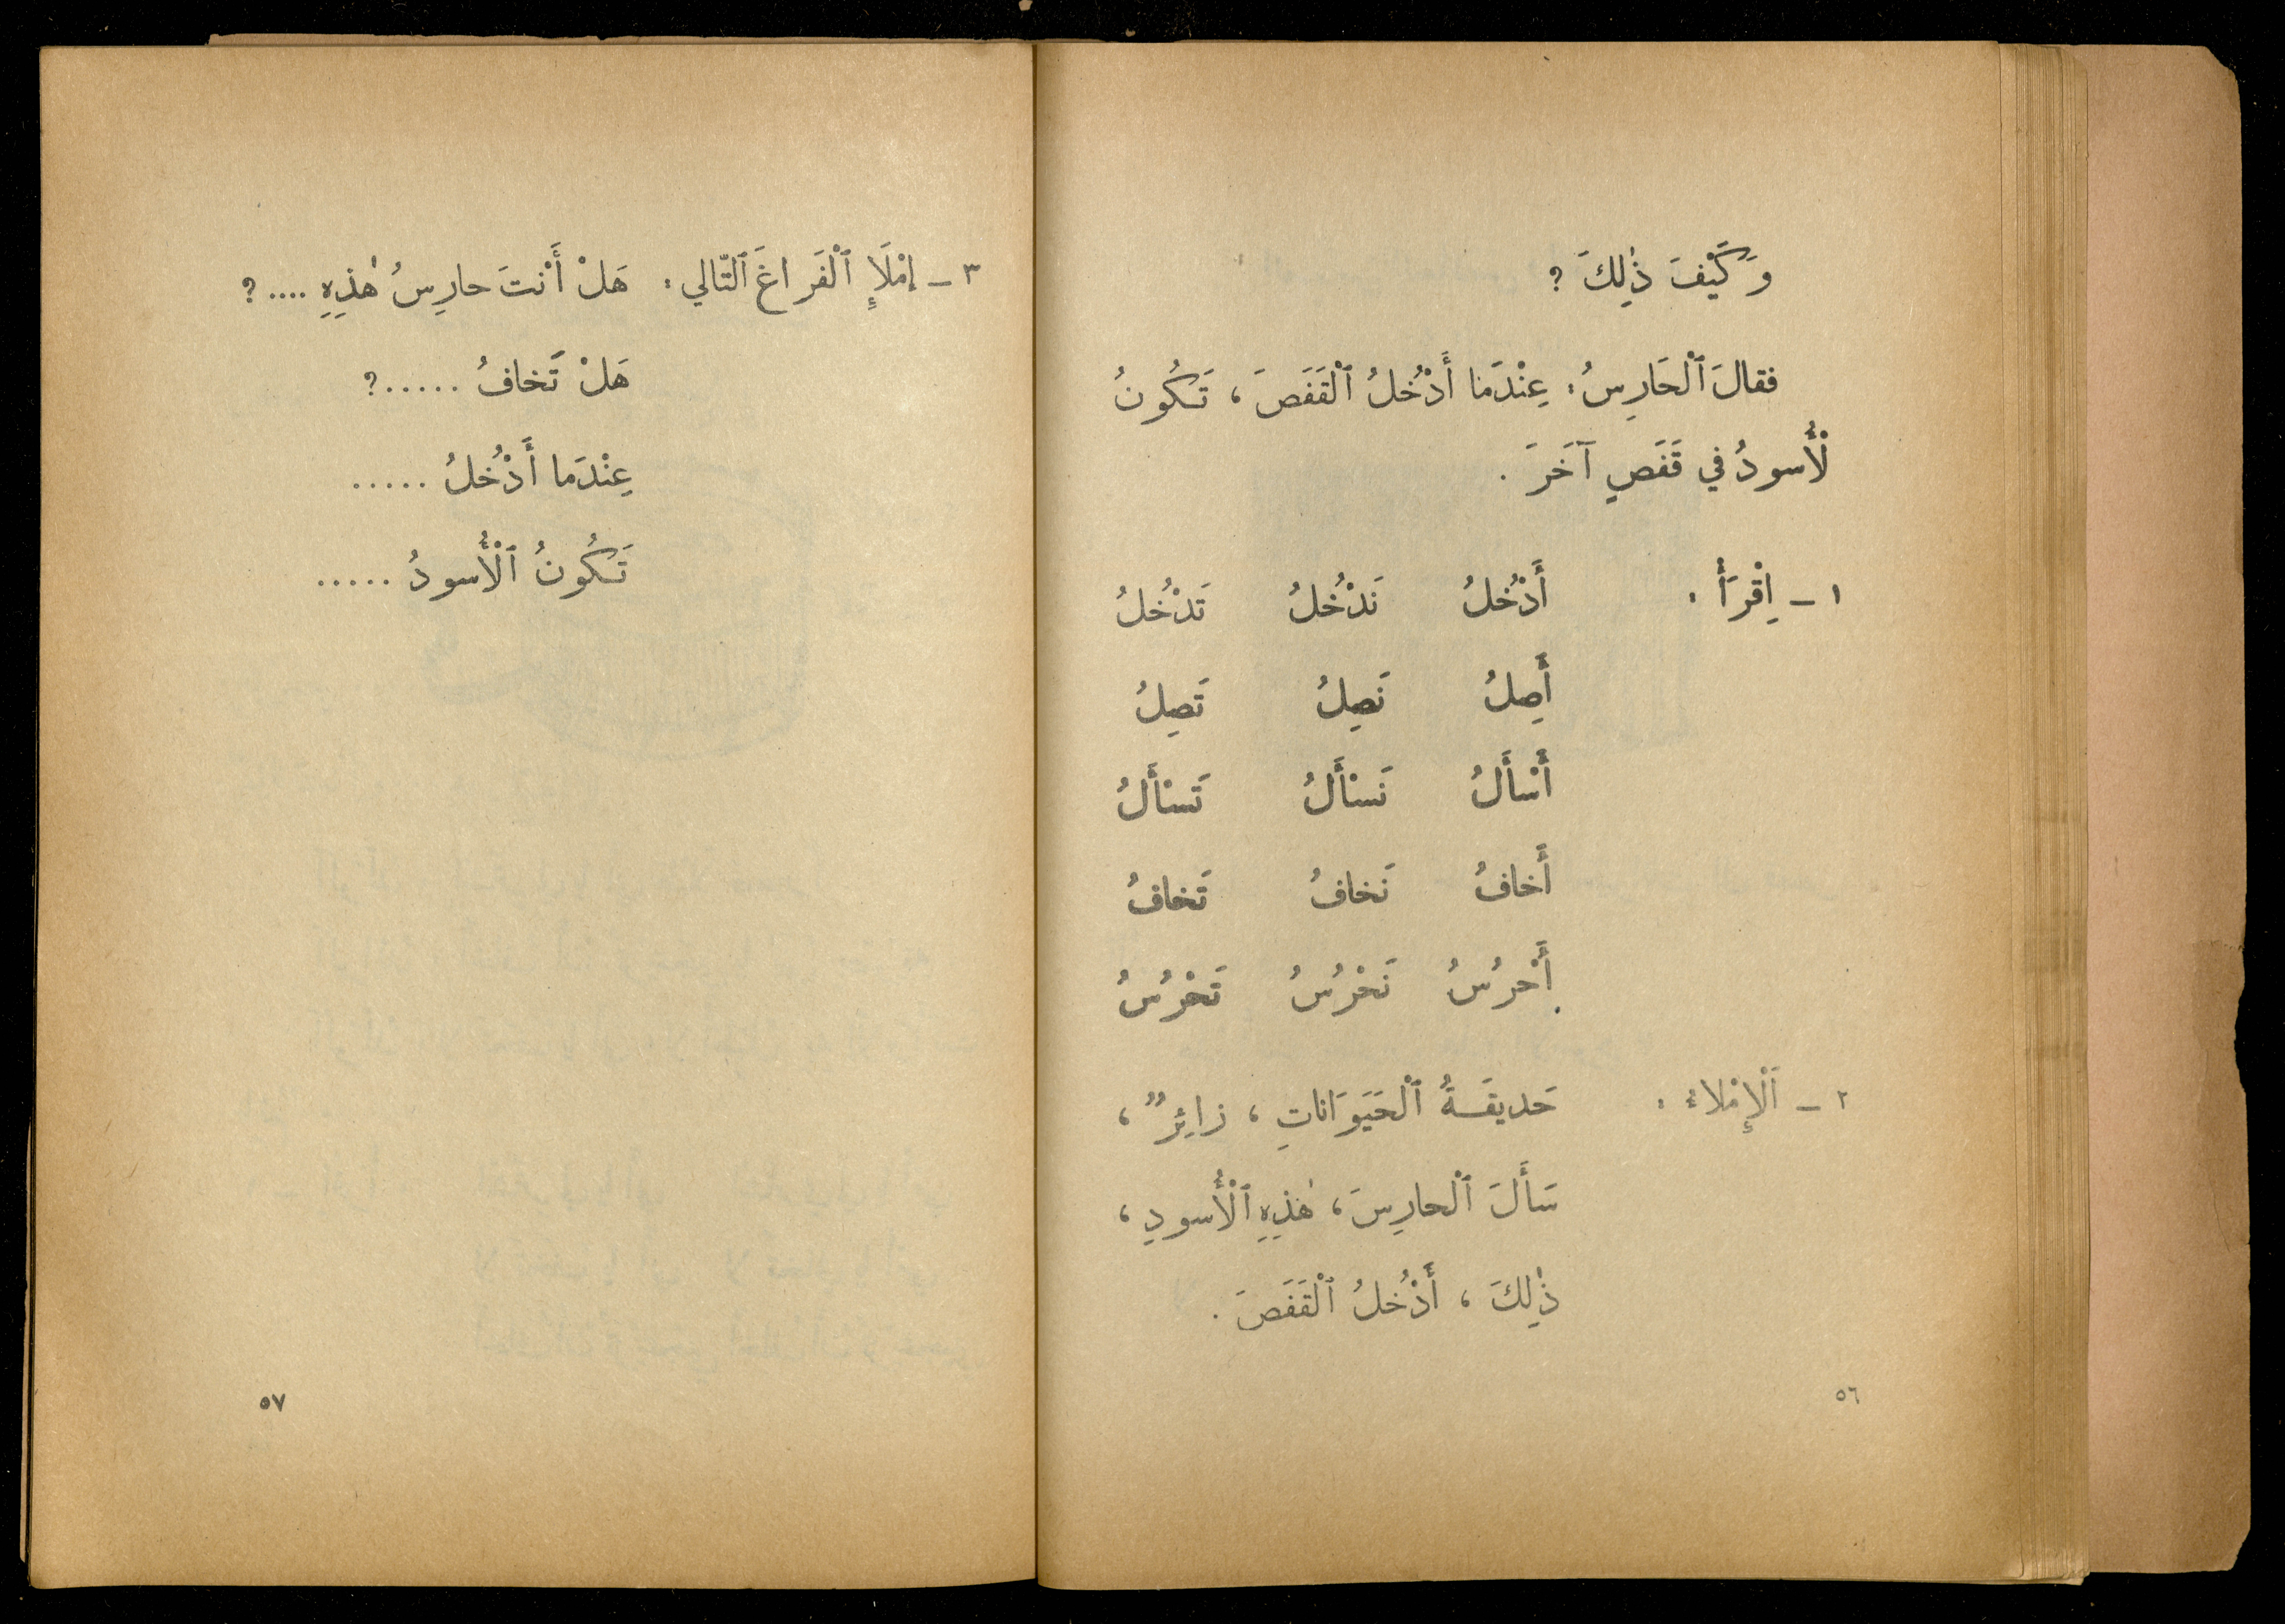 وَكَيْفَ ذٰلِكَ ؟
فقالَ ٱلْحَارِسُ: عِنْدَما أَدْخُلُ ٱلْقَفَصَ، تَكُونُ
لْأُسودُ في قَفَصٍ آخَرَ .
١ - اِقْرَأْ : أَدْخُلُ نَدْخُلُ تَدْخُلُ
أَصِلُ نَصِلُ تَصِلُ
أَسْأَلُ نَسْأَلُ تَسْأَلُ
أَخافُ نَخافُ تَخافُ
أَحْرُسُ نَحْرُسُ تَحْرُسُ
٢ - اَلْإِمْلاءُ : حَديقَةُ ٱلْحَيَوَاناتِ ، زائِرٌ ،
سَأَلَ ٱلْحارِسَ ، هٰذِهِ ٱلْأُسودِ ،
ذٰلِكَ ، أَدْخُلُ ٱلْقَفَصَ .
٥٦
٣ - اِمْلَإِ ٱلْفَراغَ ٱلتّالي : هَلْ أَنْتَ حارِسُ هٰذِهِ .... ؟
هَلْ تَخافُ ..... ؟
عِنْدَما أَدْخُلُ .....
تَكُونُ ٱلْأُسودُ .....
٥٧